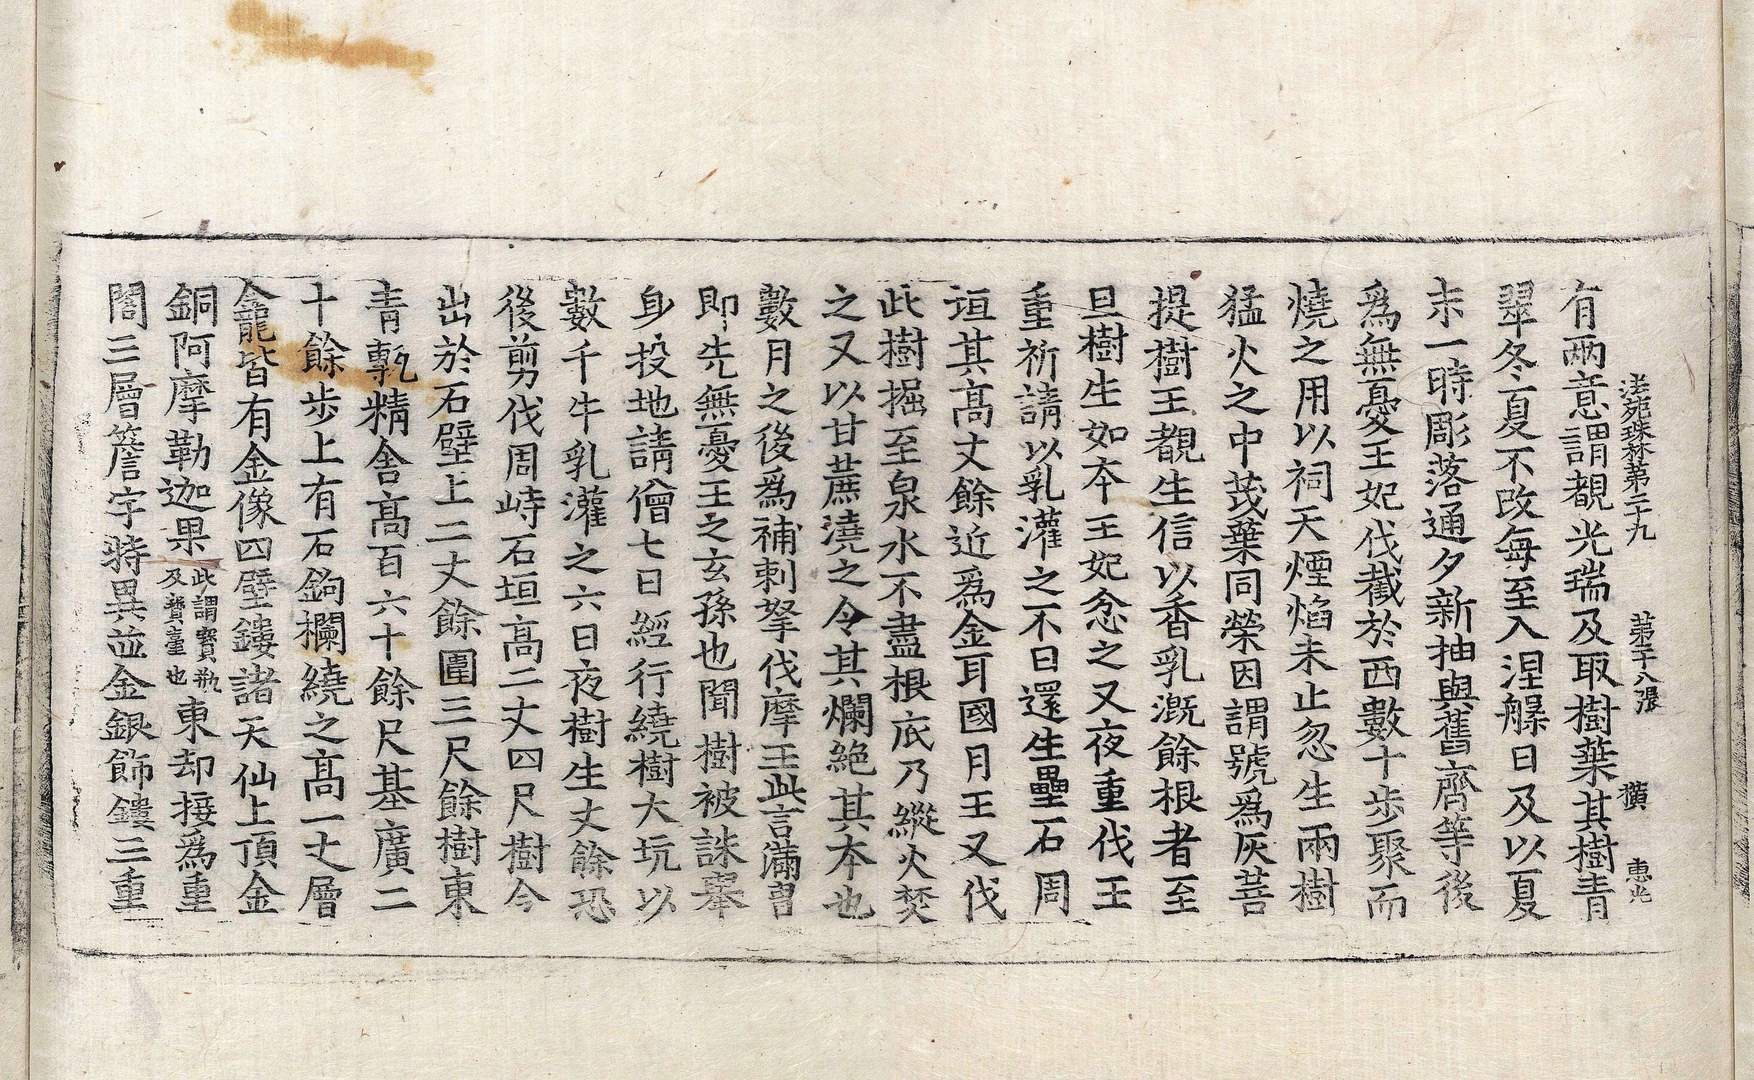 法苑珠林第二十九　第十八張　横　惠光
有兩意謂覩光瑞及取樹葉其樹青
翠冬夏不改每至入涅槃日及以夏
末一時彫落通夕新抽與舊齊等後
爲無憂王妃伐截於西數十步聚而
燒之用以祠天煙焰未止忽生兩樹
猛火之中茂葉同榮因謂號爲灰菩
提樹王覩生信以香乳溉餘根者至
旦樹生如本王妃忿之又夜重伐王
重祈請以乳灌之不日還生壘石周
垣其高丈餘近爲金耳國月王又伐
此樹掘至泉水不盡根底乃縱火焚
之又以甘蔗澆之令其爛絶其本也
數月之後爲補剌拏伐摩王此言滿冑
即先無憂王之玄孫也聞樹被誅舉
身投地請僧七日經行繞樹大坑以
數千牛乳灌之六日夜樹生丈餘恐
後剪伐周峙石垣高二丈四尺樹今
出於石壁上二丈餘圍三尺餘樹東
青甎精舍高百六十餘尺基廣二
十餘步上有石鉤欄繞之高一丈層
龕皆有金像四壁鏤諸天仙上頂金
銅阿摩勒迦果此謂寳瓶及寶臺也東却接爲重
閣三層簷宇特異並金銀飾鏤三重